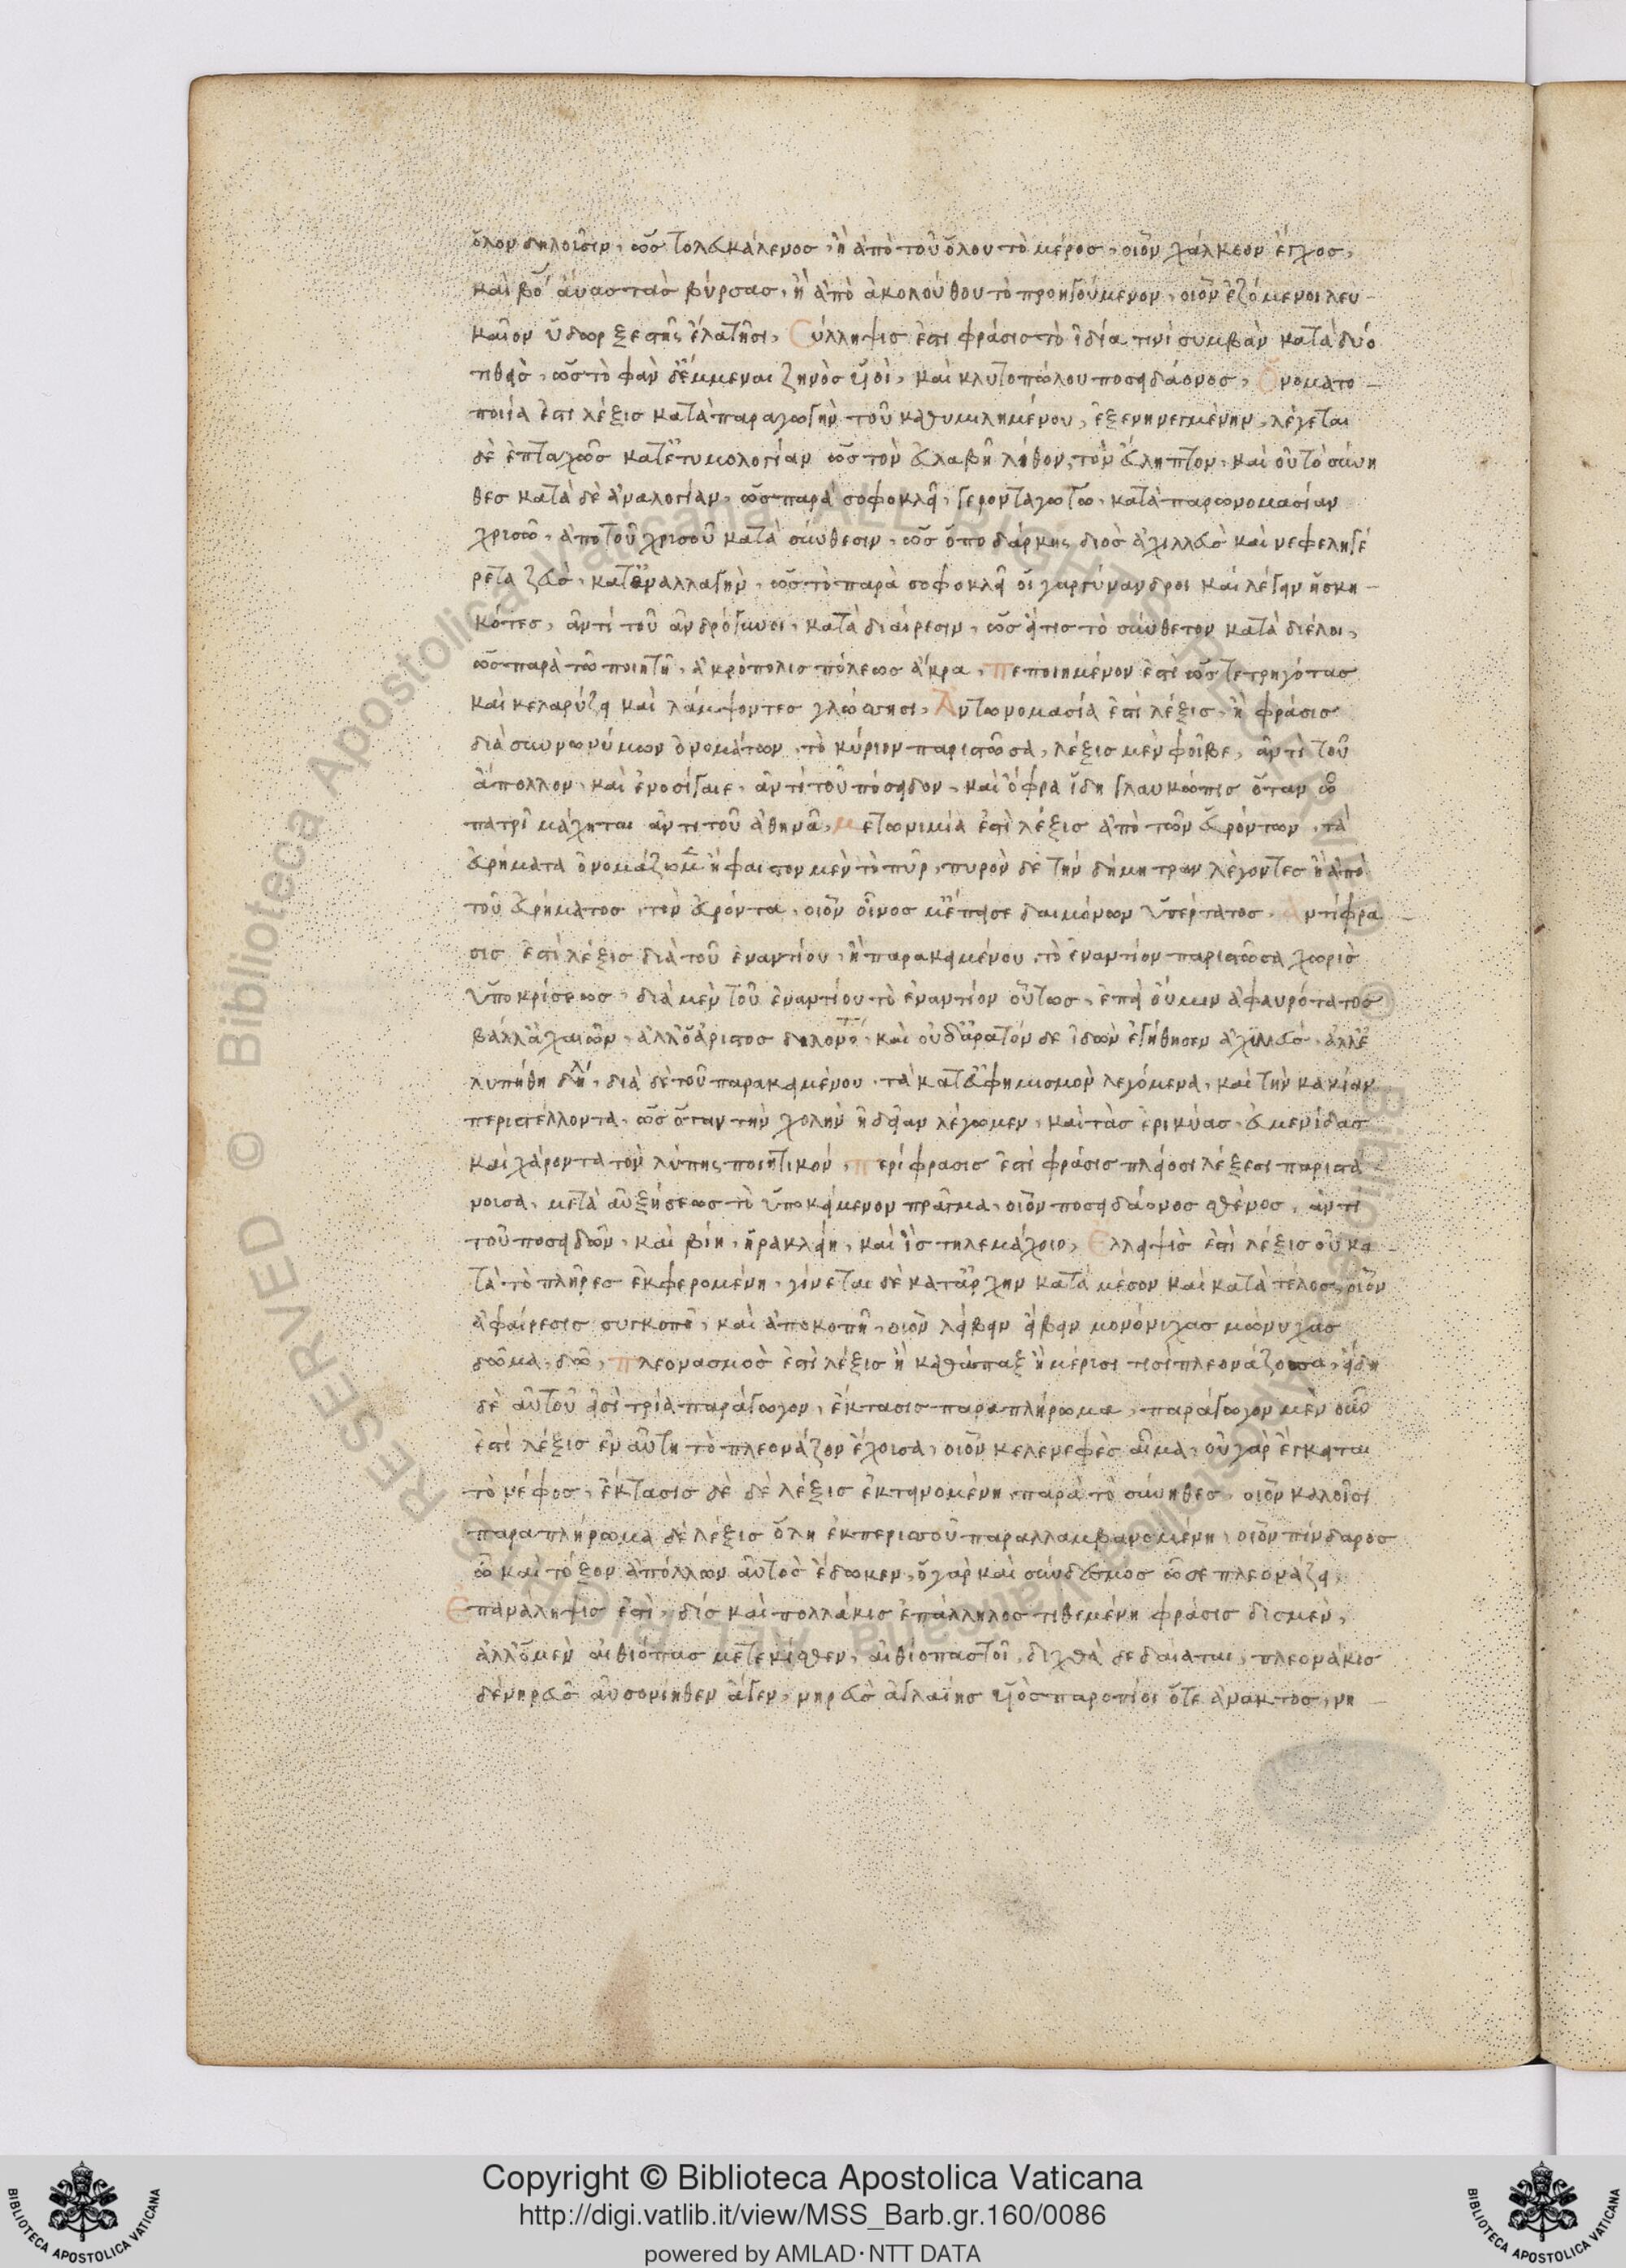 ὅλον δηλοῦσιν, ὡς τὸ λευκώλενος, ἢ ἀπὸ τοῦ ὅλου τὸ μέρος, οἷον χάλκεον ἔγχος,
καὶ βο αὔας τὰς βύρσας, ἢ ἀπὸ ἀκολούθου τὸ προηγούμενον, οἷον ἑζόμενοι λευ
καῖον ὕδωρ ξεστῆς ἐλάτῃσι, Σύλληψις ἐστὶ φράσις τὸ ἰδία τινὶ συμβὰν κατὰ δύο
τιθεὶς, ὡς τὸ φὰν δ ἔμμεναι ζηνὸς υἱοὶ, καὶ κλυτοπώλου ποσειδάονος, Ὀνοματο
ποιία ἐστι λέξις κατὰ παραγωγὴν τοῦ καθωμιλημένου, ἐξενηνεγμένην, λέγεται
δὲ ἑπταχῶς κατ ἐτυμολογίαν ὡς τὸν εὐλαβῆ λίθον, τὸν εὔληπτον, καὶ οὐ τὸ σύνη
θες κατὰ δὲ ἀναλογίαν, ὡς παρὰ σοφοκλεῖ, γερονταγωγῶ, κατὰ παρωνομασίαν
χρισῶ, ἀπὸ τοῦ χρισοῦ κατὰ σύνθεσιν, ὡς ὁ ποδάρκης διὸς ἀχιλλεὺς καὶ νεφεληγε
ρέτα ζεὺς, κατ ἐναλλαγὴν, ὡς τὸ παρὰ σοφοκλεῖ οἱ γὰρ γύνανδροι καὶ λέγειν ἠσκη
κότες, ἀντὶ τοῦ ἀνδρόγυνοι, κατὰ διαίρεσιν, ὡς εἴ τις τὸ σύνθετον κατὰ διέλοι,
ὡς παρὰ τῶ ποιητῆ, ἀκρόπολις πόλεως ἄκρα, Πεποιημένον ἐστὶ ὡς τετρηχότας
καὶ κελαρύζει καὶ λάμψοντες γλώσσησι, Ἀντωνομασία ἐστὶ λέξις, ἢ φράσις
διὰ συνωνύμων ὀνομάτων, τὸ κύριον παριστῶσα, λέξις μὲν φοῖβε, ἀντὶ τοῦ
ἄπολλον, καὶ ἐνοσίγαιε, ἀντὶ τοῦ πόσειδον, καὶ ὄφρα ἴδη γλαυκῶπις ὅταν ὧ
πατρὶ μάχηται ἀντὶ τοῦ ἀθηνᾶ, Μετωνιμία ἐστὶ λέξις ἀπὸ τῶν εὑρόντων, τὰ
εὑρήματα ὀνομάζωμεν ἥφαιστον μὲν τὸ πῦρ, πυρὸν δὲ τὴν δήμητραν λέγοντες ἢ ἀπὸ
τοῦ εὑρήματος, τὸν εὑρόντα, οἷον οἶνος μ ἔπεισε δαιμόνων ὑπέρτατος, Ἀντίφρα
σις ἐστὶ λέξις διὰ τοῦ ἐναντίου, ἢ παρακειμένου, τὸ ἐναντίον παριστῶσα χωρὶς
ὑποκρίσεως, διὰ μὲν τοῦ ἐναντίου τὸ ἐναντίον οὕτως, ἐπεὶ οὔ μιν ἀφαυρότατος
βάλλ ἀχαιῶν, ἀλλ ὁ ἄριστος δηλονότι, καὶ οὐδ ἄρα τόν δε ἰδὼν ἐγήθησεν ἀχιλλεὺς, ἀλλ ἐ
λυπήθη δη, διὰ δὲ τοῦ παρακειμένου, τὰ κατ εὐφημισμὸν λεγόμενα, καὶ τὴν κακίαν
περιστέλλοντα, ὡς ὅταν τὴν χολὴν ἡδεῖαν λέγωμεν, καὶ τὰς ἐρικύας, εὐμενίδας
καὶ χάροντα τὸν λύπης ποιητικόν, Περίφρασις ἐστὶ φράσις πλείοσι λέξεσι παριστά
νοισα, μετὰ αὐξήσεως τὸ ὑποκείμενον πρᾶγμα, οἷον ποσειδάονος σθένος, ἀντὶ
τοῦ ποσειδῶν, καὶ βίη, ἡρακλείη, καὶ ἲς τηλεμάχοιο, Ἔλλειψις ἐστὶ λέξις οὐ κα
τὰ τὸ πλῆρες ἐκφερομένη, γίνεται δὲ κατ ἀρχὴν κατὰ μέσον καὶ κατὰ τέλος, οἷον
ἀφαίρεσις συγκοπῆ, καὶ ἀποκοπῆ, οἷον λείβειν εἴβειν μονόνιχας μώνυχας
δῶμα, δῶ, Πλεονασμὸς ἐστὶ λέξις ἢ καθάπαξ ἢ μέρισι τισὶ πλεονάζουσα, εἴδη
δὲ αὐτοῦ εἰσὶ τρία παράγωγον, ἔκτασις παραπλήρωμα, παράγωγον μὲν οὖν
ἐστὶ λέξις ἐν αὐτῆ τὸ πλεονάζον ἔχοισα, οἷον κελενεφὲς αἷμα, οὐ γὰρ ἔγκειται
τὸ νέφος, ἔκτασις δὲ δὲ λέξις ἐκτεινομένη παρὰ τὸ σύνηθες, οἷον καλοῖσι
παραπλήρωμα δὲ λέξις ὅλη ἐκ περισσοῦ παραλλαμβανομένη, οἷον πίνδαρος
ὧ καὶ τόξον ἀπόλλων αὐτὸς ἔδωκεν, ὁ γὰρ καὶ σύνδεσμος ὧσε πλεονάζει,
Ἐπανάληψις ἐστὶ, δίς καὶ πολλάκις ἐπάλληλος τιθεμένη φράσις δὶς μὲν,
ἀλλ ὁ μὲν αἰθίοπας μετεκίαθεν, αἰθίοπας τοὶ, διχθὰ δεδαίαται, πλεονάκις
δὲ νηρεὺς αὖ σύμηθεν ἄγεν, νηρεὺς ἀγλαίης υἱὸς χαροπίοι ὅτε ἄνακτος, νη